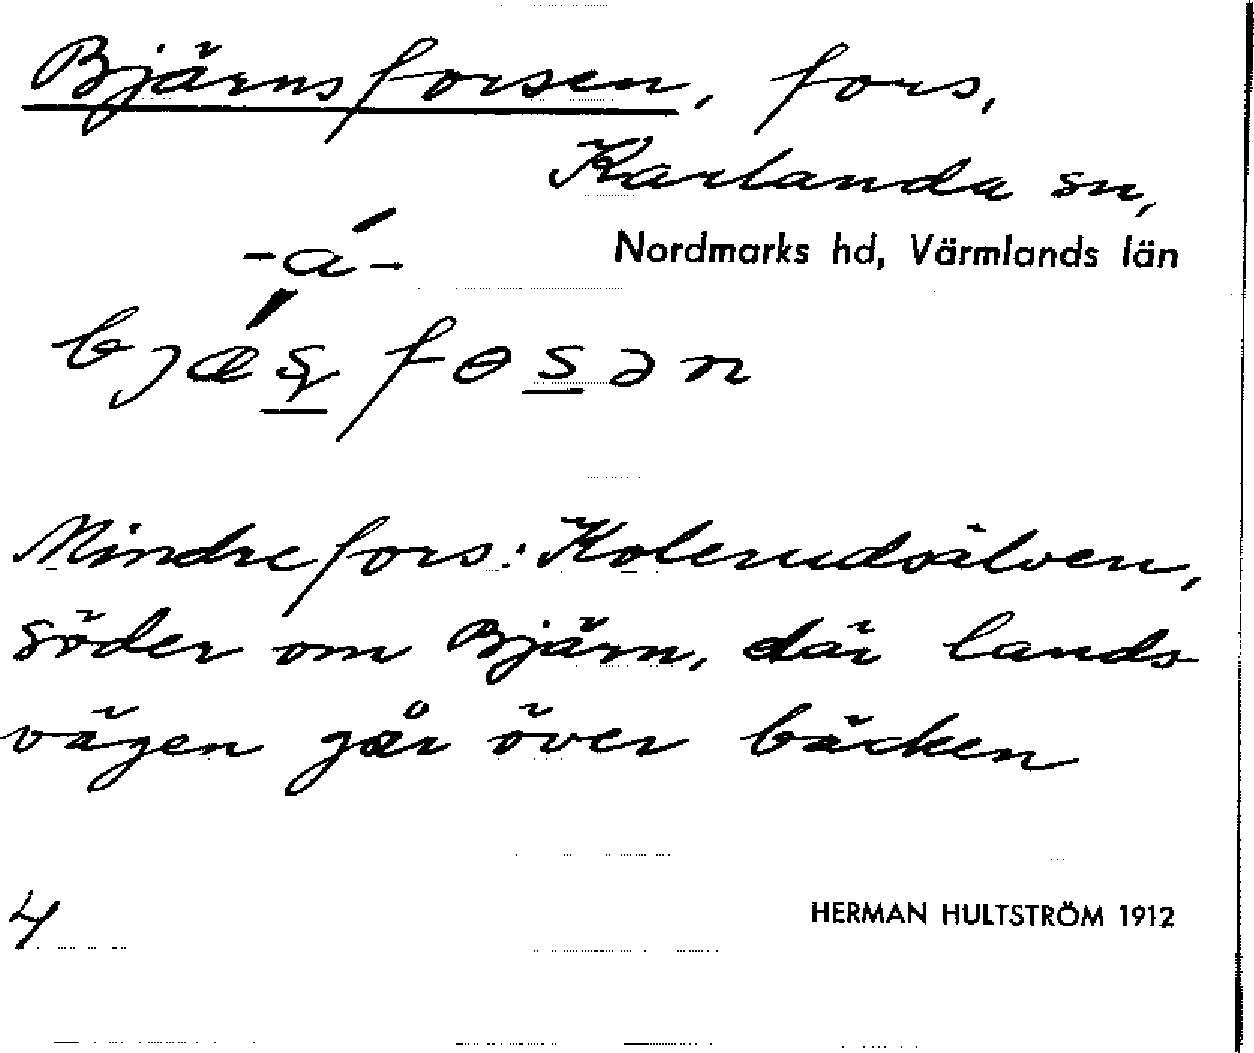 Bjärnsforsen, fors,
Karlanda sn,
Nordmarks hd, Värmlands län
-á-
bjæ̂s̱fɵs̱ən
Mindre fors i Kolerudsälven,
söder om Bjärn, där lands-
vägen går över bäcken
4
HERMAN HULTSTRÖM 1912